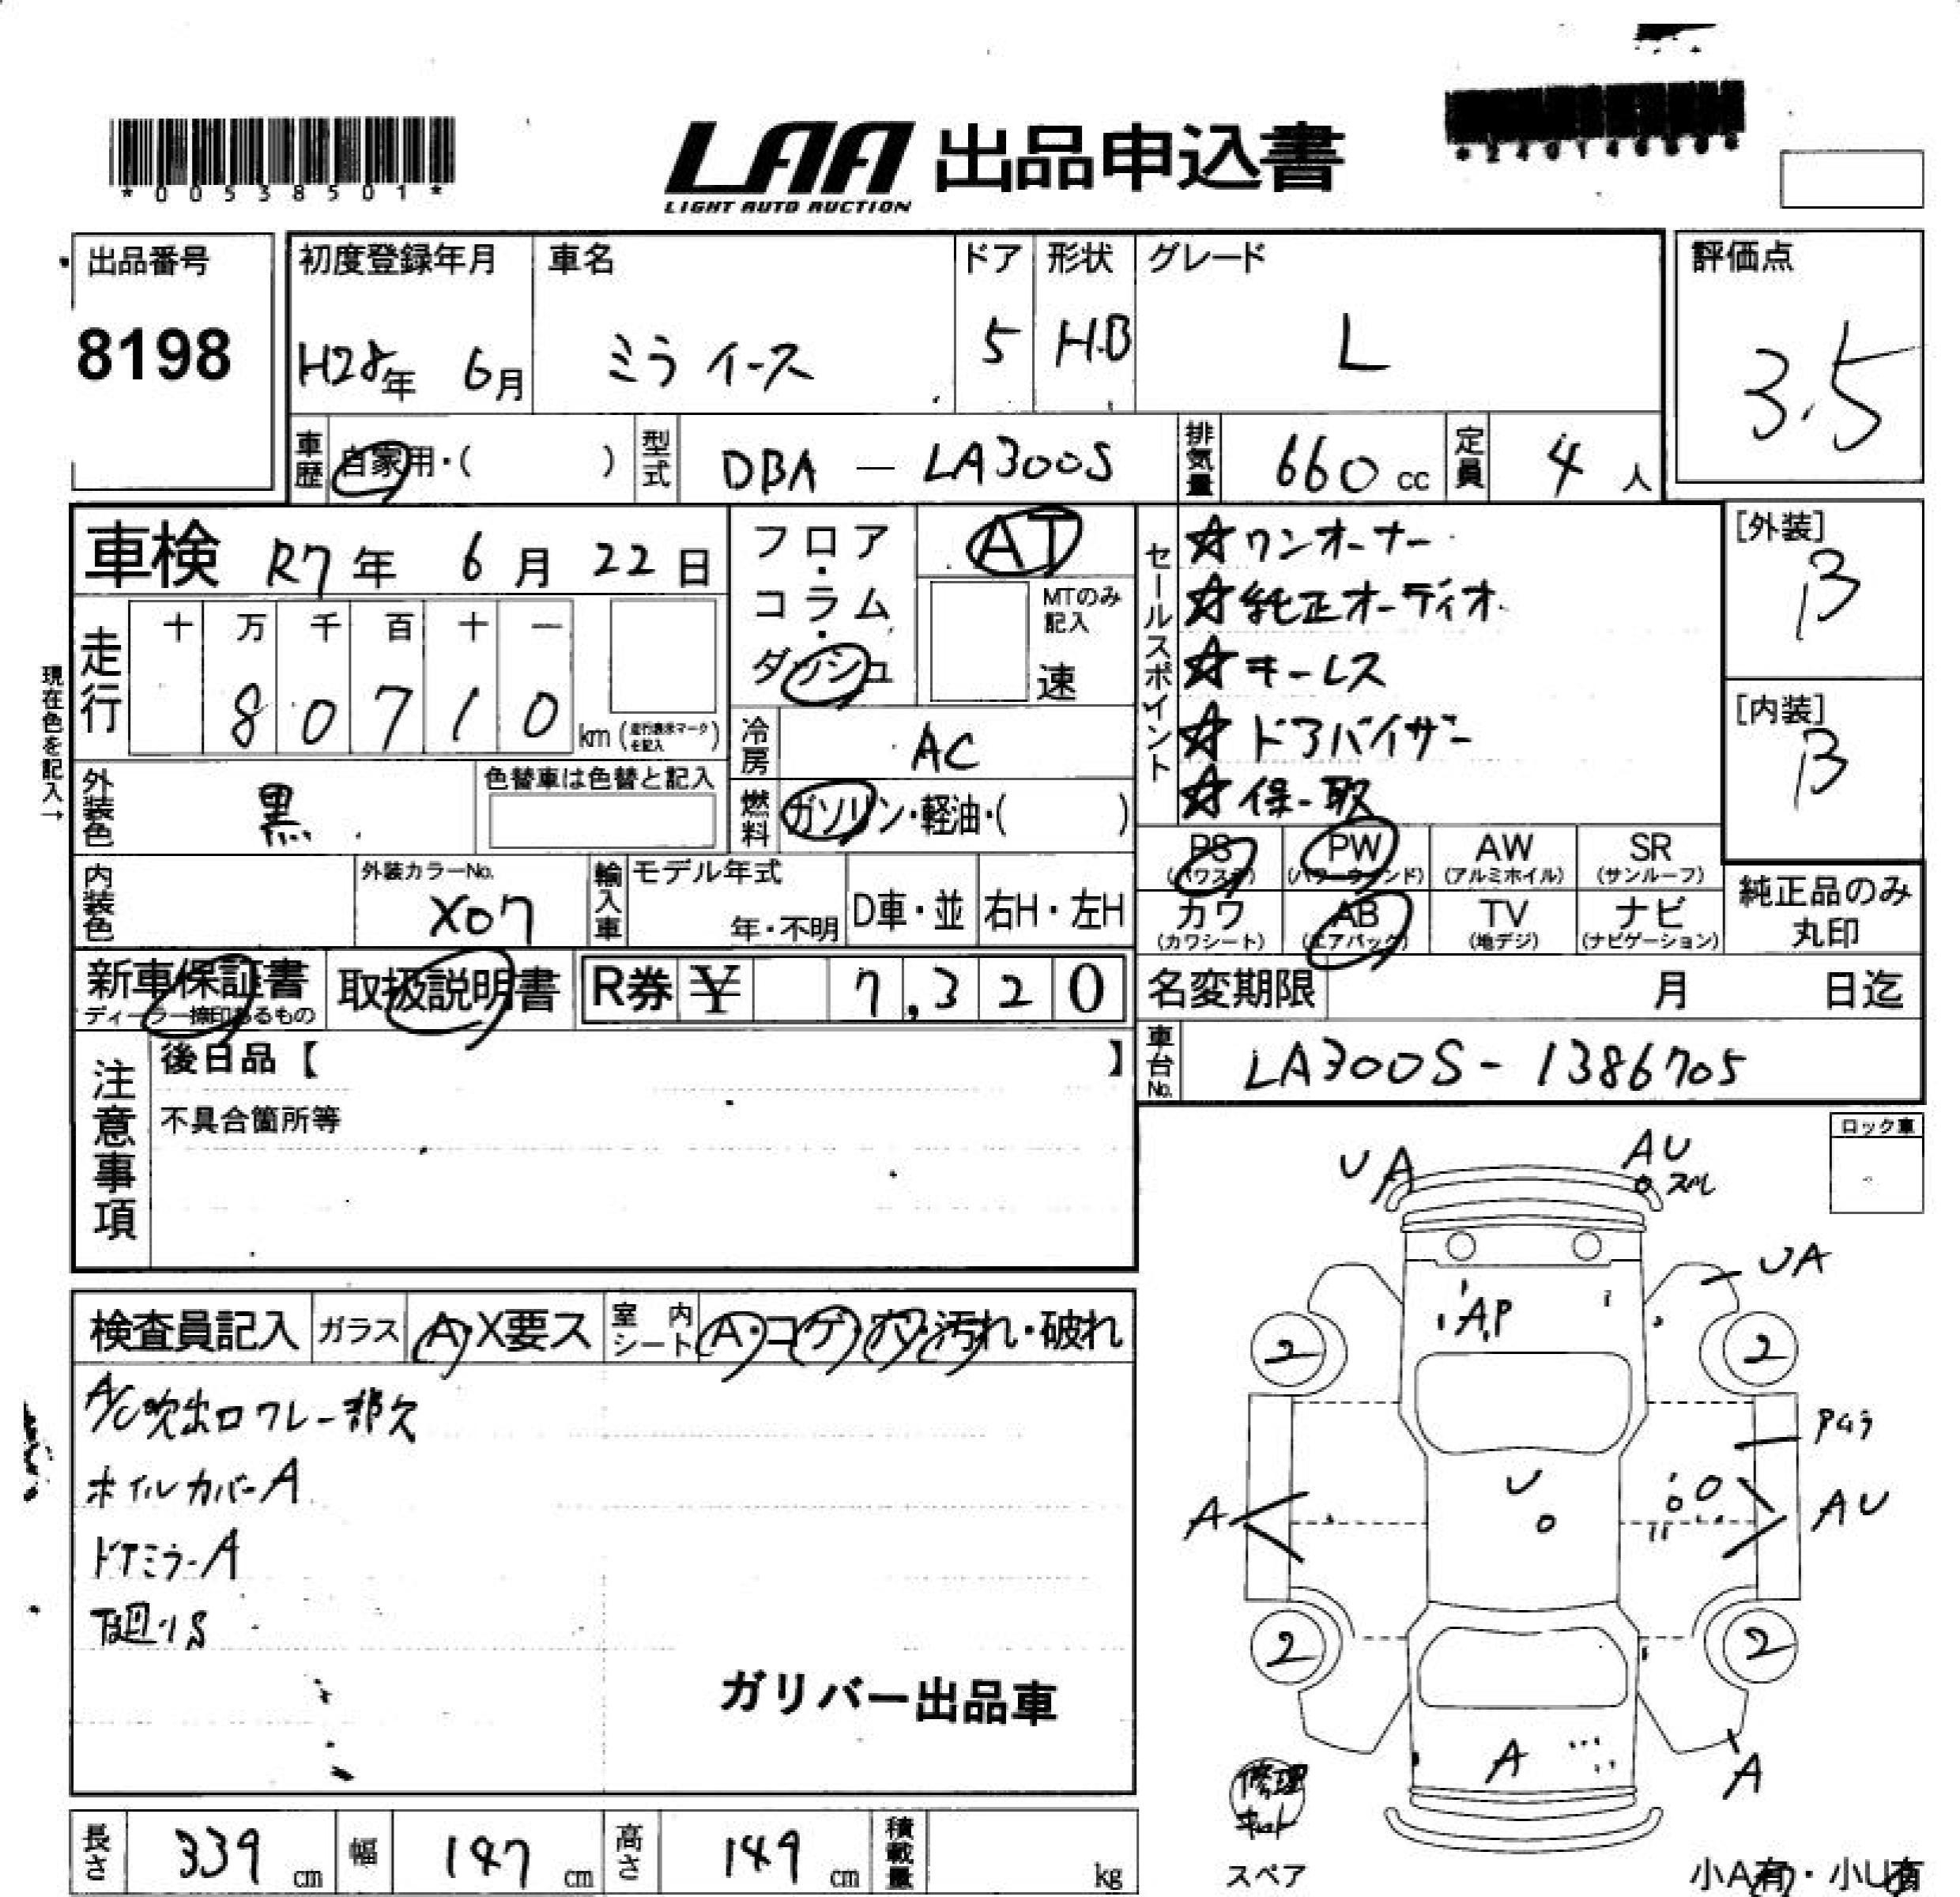 *00538501*
LAA 出品申込書
LIGHT AUTO AUCTION
出品番号
8198
初度登録年月 車名 ドア 形状 グレード
H28年 6月 ミライース 5 H.B L
評価点
3.5
車歴 自家用・( ) 型式 DBA — LA300S 排気量 660 cc 定員 4 人
車検 R7年 6月 22日
フロア・コラム・ダッシュ
AT
MTのみ記入
速
セールスポイント
☆ワンオーナー
☆純正オーディオ
☆キーレス
☆ドアバイザー
☆保-取
[外装]
B
[内装]
B
現在色を記入→
走行 十 万 千 百 十 一
8 0 7 1 0 km (走行表示マークを記入)
冷房 AC
外装色 黒 色替車は色替と記入
燃料 ガソリン・軽油・( )
PS (パワステ) PW (パワーウインド) AW (アルミホイル) SR (サンルーフ)
カワ (カワシート) AB (エアバック) TV (地デジ) ナビ (ナビゲーション)
純正品のみ丸印
内装色 外装カラーNo. X07 輸入車 モデル年式 年・不明 D車・並 右H・左H
新車保証書 ディーラー捺印あるもの 取扱説明書 R券 ¥ 7,320
名変期限 月 日迄
車台No. LA300S-1386705
注意事項
後日品【 】
不具合箇所等
ロック車
検査員記入 ガラス A・X要ス 室内シート A・コゲ・穴・汚れ・破れ
A/C吹出口フレーム欠
ホイルカバーA
ドアミラーA
下廻りS
ガリバー出品車
U A
A U
スレ
U A
A P
2 2
Pムラ
U
A
A U
2 2
A
A
修理キット
スペア
小A有・小U有
長さ 339 cm 幅 147 cm 高さ 149 cm 積載量 kg